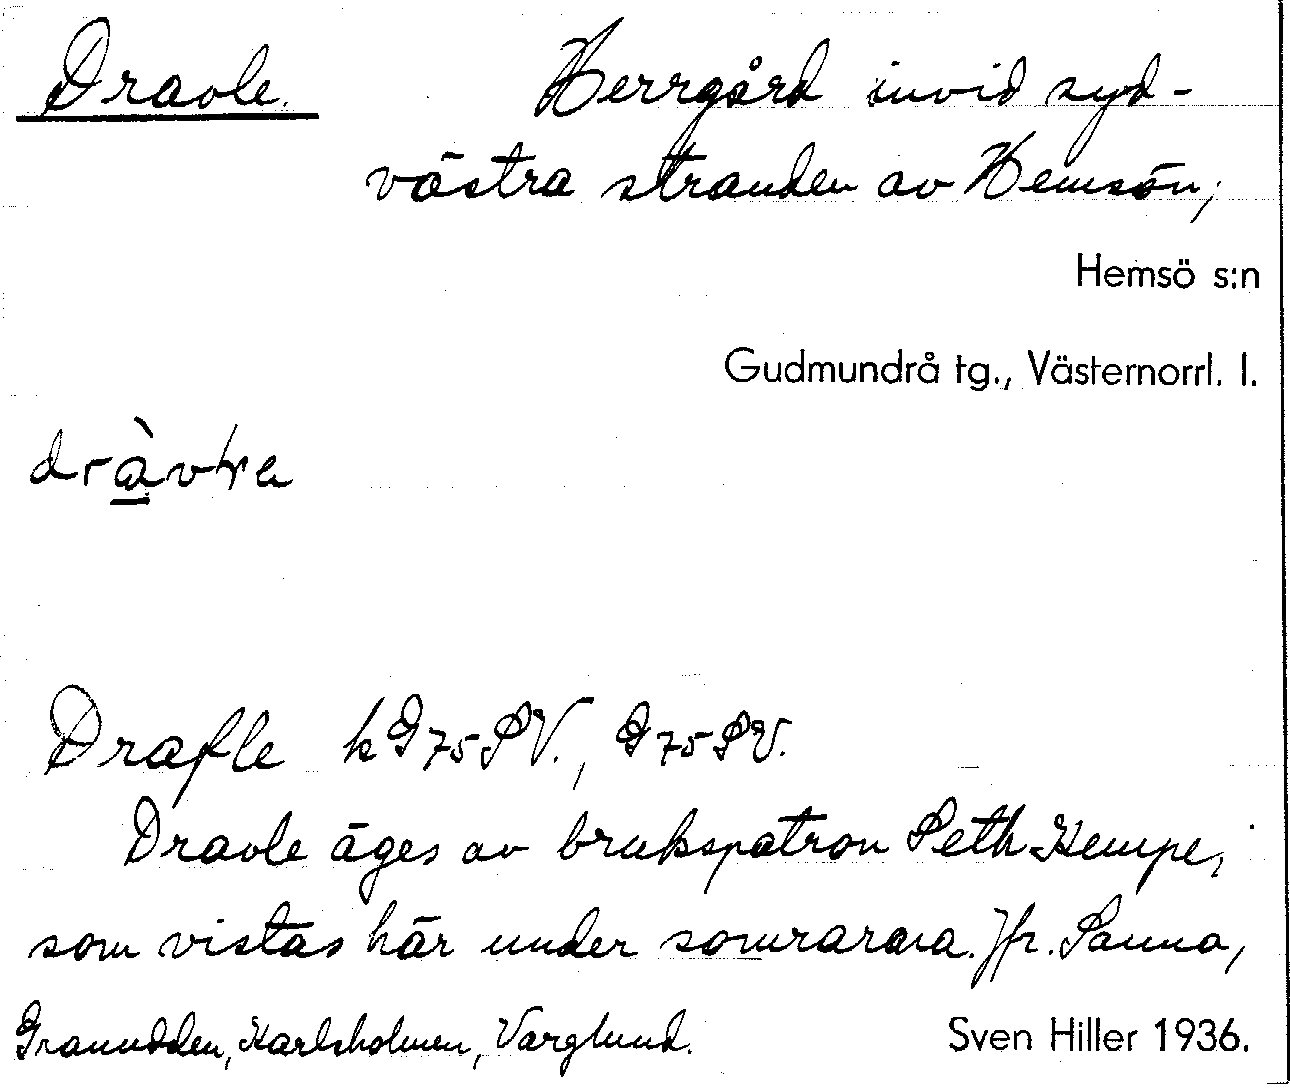 Dravle. Herrgård invid syd-
västra stranden av Hemsön,
Hemsö s:n
Gudmundrå tg., Västernorrl. l.
Drafle k G75SV., G75SV.
Dravle äges av brukspatron Seth Kempe,
som vistas här under somrarna. Jfr. Sanna,
Granudden, Karlsholmen, Varglund.
Sven Hiller 1936.